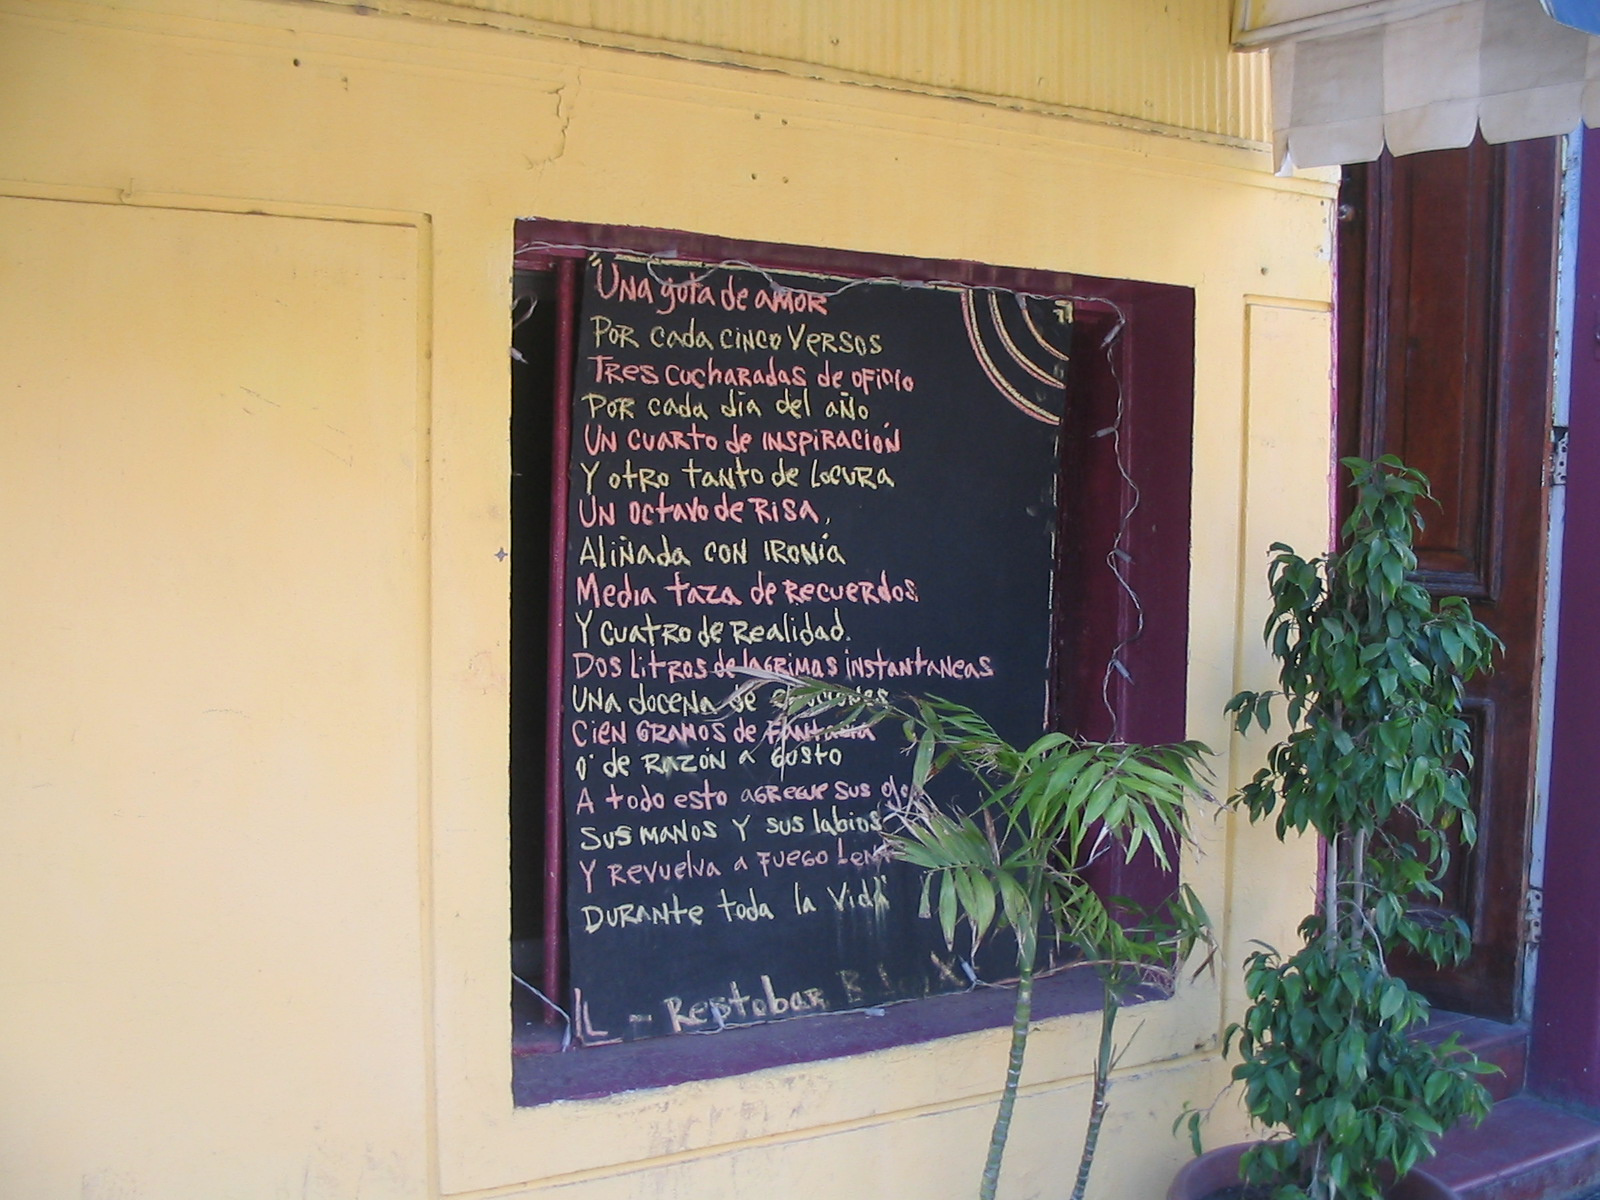 Una gota de amor
Por cada cinco versos
Tres cucharadas de oficio
Por cada dia del año
Un cuarto de inspiración
Y otro tanto de locura
Un octavo de risa,
Aliñada con ironía
Media taza de recuerdos
Y cuatro de realidad.
Dos litros de lagrimas instantaneas
Una docena de
Cien gramos de Fantasia
o de razón a gusto
A todo esto agregue sus
sus manos y sus labios
Y revuelva a fuego
Durante toda la vida
Reptobar